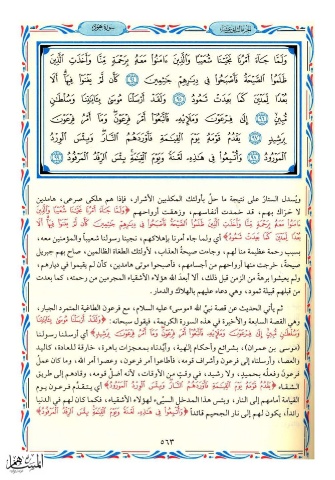 سورة هود
وَلَمَّا جَاءَ أَمْرُنَا نَجَّيْنَا شُعَيْبًا وَالَّذِينَ ءَامَنُوا مَعَهُ بِرَحْمَةٍ مِنَّا وَأَخَذَتِ الَّذِينَ
ظَلَمُوا الصَّيْحَةُ فَأَصْبَحُوا فِي دِيَارِهِمْ جَاثِمِينَ ﴿٩٤﴾ كَأَن لَّمْ يَغْنَوْا فِيهَا أَلَا
بُعْدًا لِّمَدْيَنَ كَمَا بَعِدَتْ ثَمُودُ ﴿٩٥﴾ وَلَقَدْ أَرْسَلْنَا مُوسَى بِآيَاتِنَا وَسُلْطَانٍ
مُّبِينٍ ﴿٩٦﴾ إِلَى فِرْعَوْنَ وَمَلَإِيهِ فَاتَّبَعُوا أَمْرَ فِرْعَوْنَ وَمَا أَمْرُ فِرْعَوْنَ
بِرَشِيدٍ ﴿٩٧﴾ يَقْدُمُ قَوْمَهُ يَوْمَ الْقِيَامَةِ فَأَوْرَدَهُمُ النَّارَ وَبِئْسَ الْوِرْدُ
الْمَوْرُودُ ﴿٩٨﴾ وَأُتْبِعُوا فِي هَذِهِ لَعْنَةً وَيَوْمَ الْقِيَامَةِ بِئْسَ الرِّفْدُ الْمَرْفُودُ ﴿٩٩﴾
ويُسدل الستارُ على نتيجة ما حلَّ بأولئك المكذبين الأشرار، فإذا هم هلكى صرعى، هامدين
لا حَرَاك بهم، قد خمدت أنفاسهم، وزهقت أرواحهم ﴿وَلَمَّا جَاءَ أَمْرُنَا نَجَّيْنَا شُعَيْبًا وَالَّذِينَ
ءَامَنُوا مَعَهُ بِرَحْمَةٍ مِنَّا وَأَخَذَتِ الَّذِينَ ظَلَمُوا الصَّيْحَةُ فَأَصْبَحُوا فِي دِيَارِهِمْ جَاثِمِينَ كَأَن لَّمْ يَغْنَوْا فِيهَا أَلَا
بُعْدًا لِّمَدْيَنَ كَمَا بَعِدَتْ ثَمُودُ﴾ أي ولما جاء أمرنا بإهلاكهم، نجينا رسولنا شعيباً والمؤمنين معه،
بسبب رحمة عظيمة منا لهم، وجاءت صيحةُ العذاب، لأولئك الطغاة الظالمين، صاح بهم جبريل
صيحةً، خرجت منها أرواحهم من أجسامهم، فأصبحوا موتى هامدين، كأن لم يقيموا في ديارهم،
ولم يعيشوا برهةً من الزمن قبل ذلك، ألا أبعد الله هؤلاء الأشقياء المجرمين من رحمته، كما بعدت
من قبلهم قبيلة ثمود، وهي دعاء عليهم بالهلاك والدمار.
ثم يأتي الحديث عن قصة نبيِّ الله «موسى» عليه السلام، مع فرعون الطاغية المتمرد الجبار،
وهي القصة السابعة والأخيرة في هذه السورة الكريمة، فيقول سبحانه: ﴿وَلَقَدْ أَرْسَلْنَا مُوسَى بِآيَاتِنَا
وَسُلْطَانٍ مُبِينٍ إِلَى فِرْعَوْنَ وَمَلَإِيهِ فَاتَّبَعُوا أَمْرَ فِرْعَوْنَ وَمَا أَمْرُ فِرْعَوْنَ بِرَشِيدٍ﴾ أي أرسلنا رسولنا
(موسى بن عمران)، بشرائع وأحكام إلهية، وأيَّدناه بمعجزات باهرة، خارقة للعادة؛ كاليد
والعصا، وأرسلناه إلى فرعون وأشراف قومه، فأطاعوا أمر فرعون، وعصوا أمر الله، وما كان عملُ
فرعونَ وفعلُه بحميدٍ، ولا رشيد، في وقتٍ من الأوقات، لأنه أضلَّ قومه، وقادهم إلى طريق
الشقاء ﴿يَقْدُمُ قَوْمَهُ يَوْمَ الْقِيَامَةِ فَأَوْرَدَهُمُ النَّارَ وَبِئْسَ الْوِرْدُ الْمَوْرُودُ﴾ أي يتقدَّم فرعون يوم
القيامة أمامهم إلى النار، وبئس هذا المدخل السيّىء لهؤلاء الأشقياء، فكما كان لهم في الدنيا
رائداً، يكون لهم إلى نار الجحيم قائداً ﴿وَأُتْبِعُوا فِي هَذِهِ لَعْنَةً وَيَوْمَ الْقِيَامَةِ بِئْسَ الرِّفْدُ الْمَرْفُودُ﴾
٥٦٣